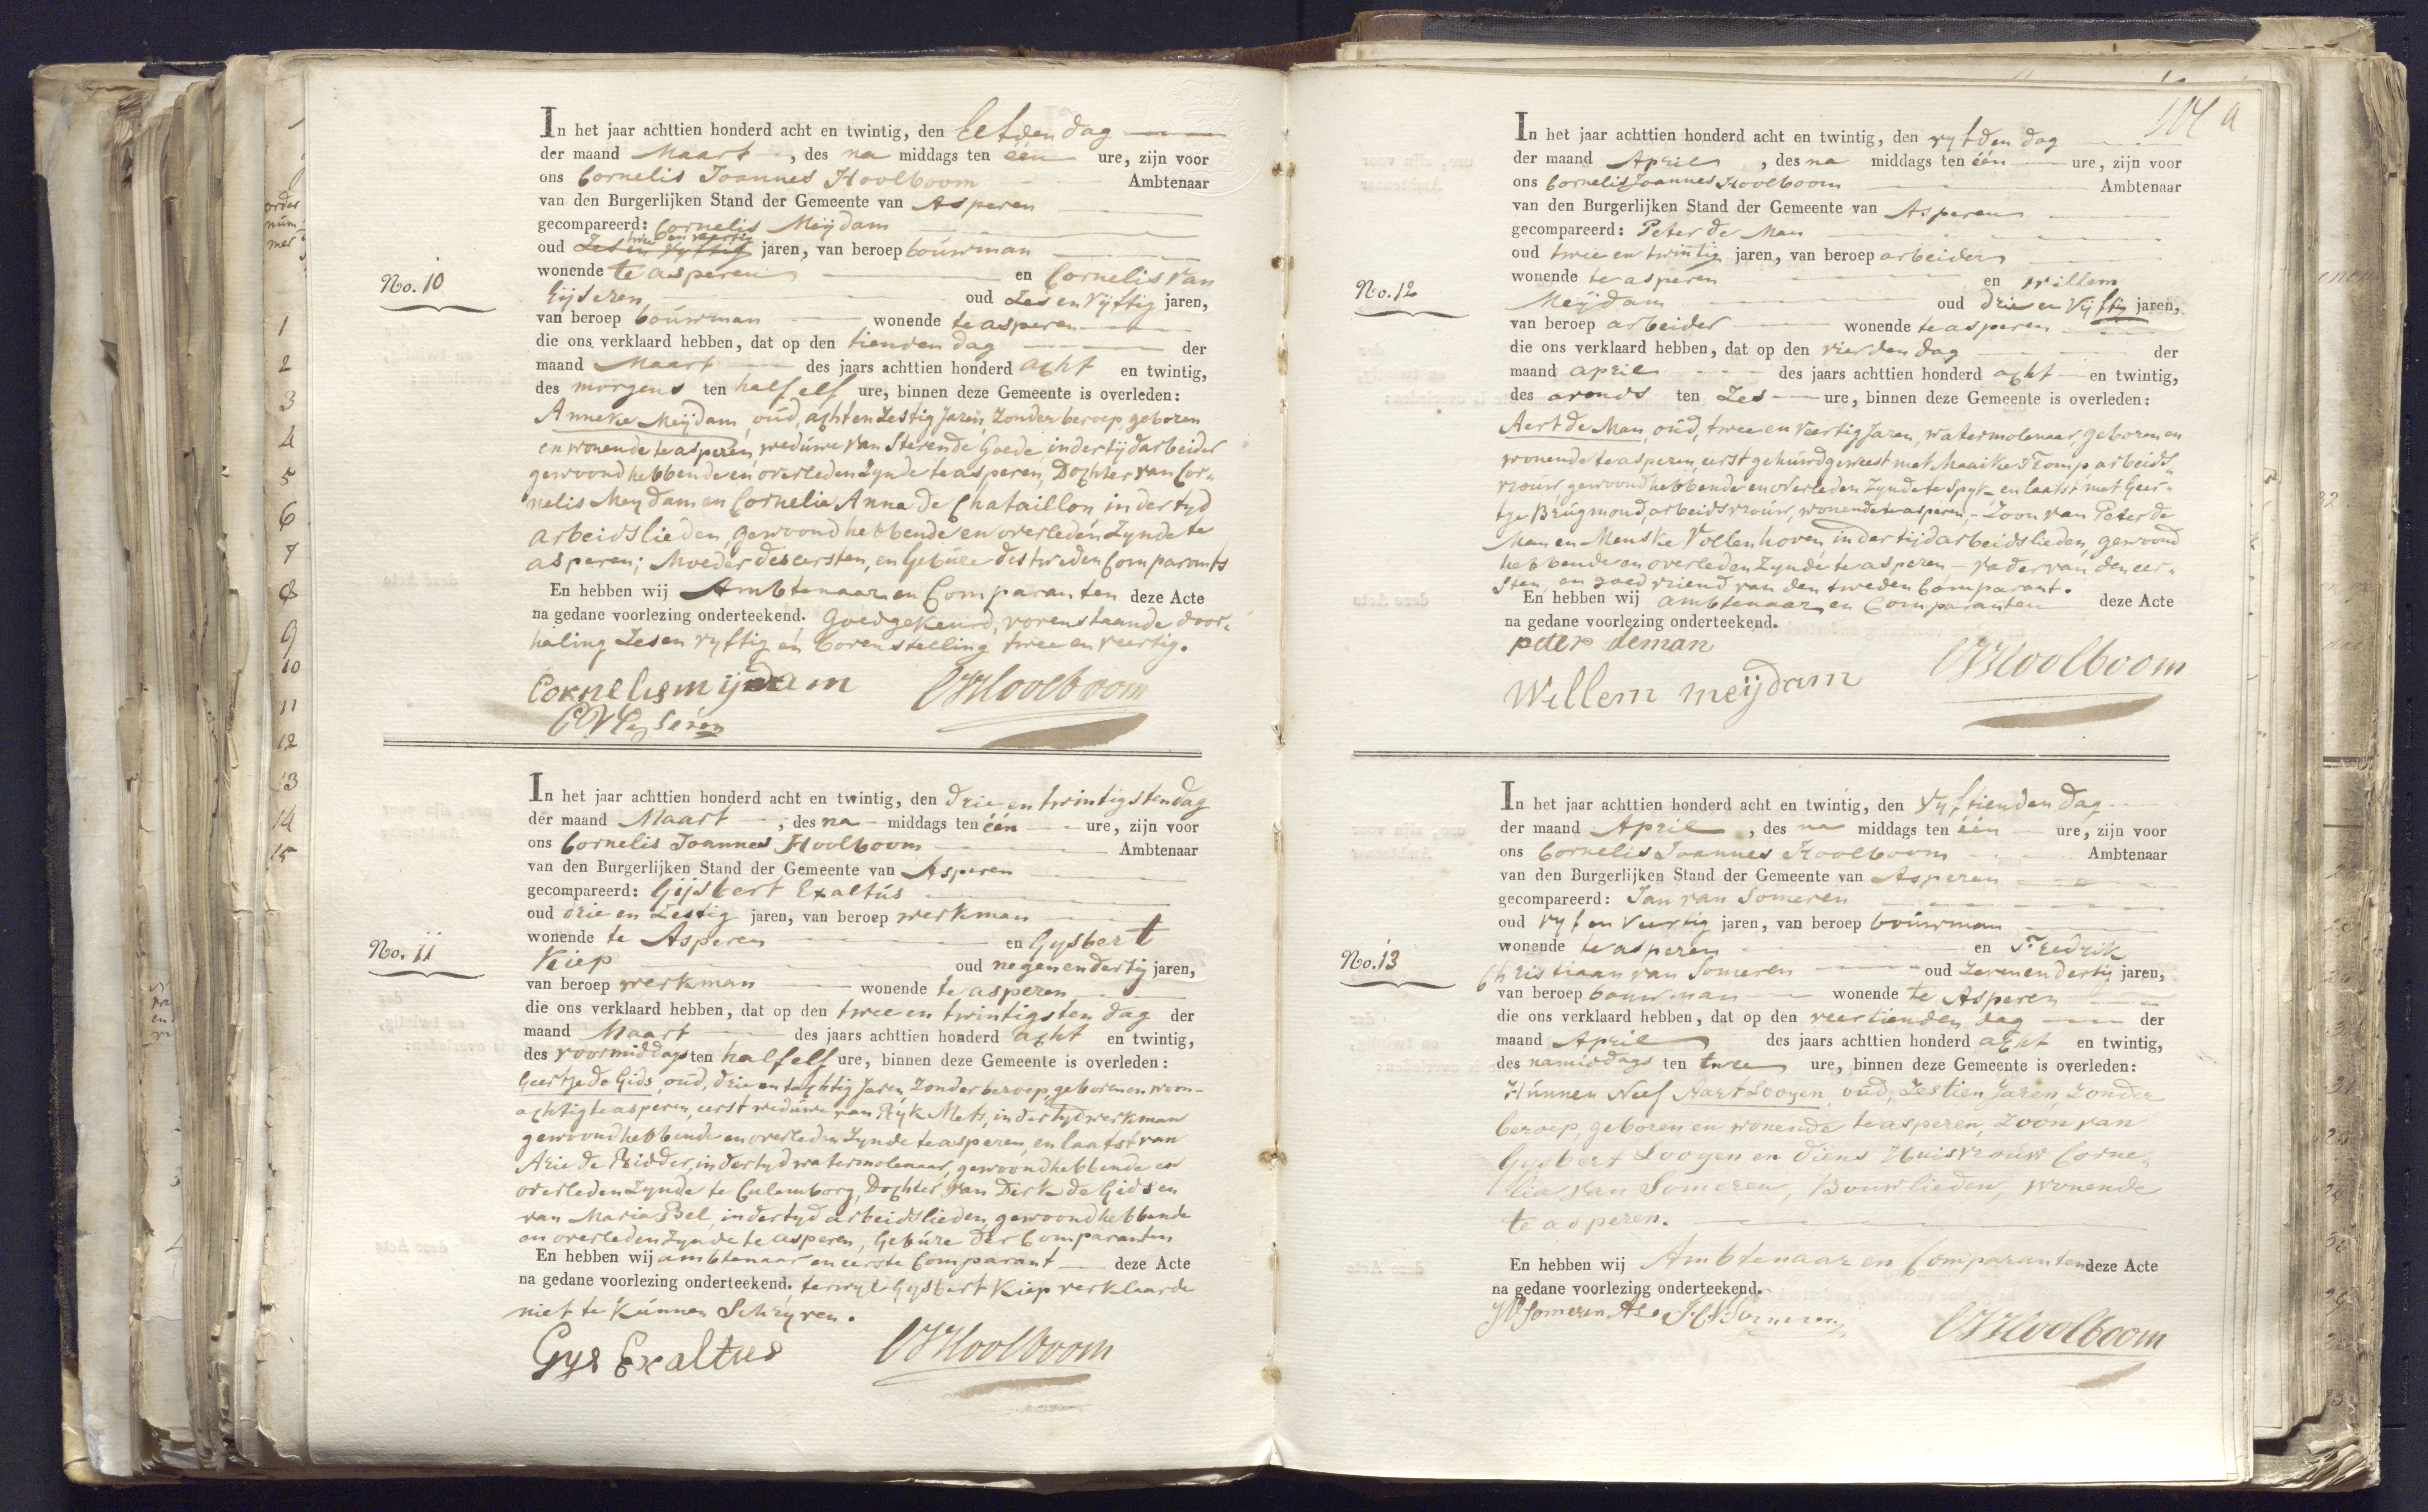 In het jaar achttien honderd acht en twintig, den Elfden dag
der maand Maart, des na middags ten één ure, zijn voor
ons Cornelis Joannes Hoolboom Ambtenaar
van den Burgerlijken Stand der Gemeente van Asperen
gecompareerd: Cornelis Meijdam
twee en veertig
oud Zes en vyftig jaren, van beroep bouwman
wonende te asperen en Cornelis van
No. 10
Eijseren oud Zes en Vyftig jaren,
van beroep bouwman wonende te asperen
die ons verklaard hebben, dat op den tienden dag der
maand Maart des jaars achttien honderd acht en twintig,
des morgens ten half elf ure, binnen deze Gemeente is overleden:
Anneke Meijdam, oud, acht en Zestig Jaren, Zonder beroep, geboren
en wonende te asperen, weduwe van Steven de Goede, in der tijd arbeider
gewoond hebbende en overleden Zynde te asperen, Dochter van Cor„
nelis Meydam en Cornelia Anna de Chataillon in der tyd
arbeidslieden, gewoond hebbende en overleden Zynde te
asperen; Moeder des eersten, en Gebure des tweeden Comparants
En hebben wij Ambtenaar en Comparanten deze Acte
na gedane voorlezing onderteekend. Goedgekeurd, vorenstaande door„
haling Zes en vyftig en bovenstelling twee en veertig.
Cornelis mijdam CJHoolboom
CVEyseren
In het jaar achttien honderd acht en twintig, den drie en twintigsten dag
der maand Maart, des na middags ten één ure, zijn voor
ons Cornelis Joannes Hoolboom Ambtenaar
van den Burgerlijken Stand der Gemeente van Asperen
gecompareerd: Gijsbert Exaltus
oud drie en Zestig jaren, van beroep werkman
wonende te Asperen en Gysbert
No. 11
Kiep oud negen en dertig jaren,
van beroep werkman wonende te asperen
die ons verklaard hebben, dat op den twee en twintigsten dag der
maand Maart des jaars achttien honderd acht en twintig,
des voormiddags ten half elf ure, binnen deze Gemeente is overleden:
Geertje de Gids, oud, drie en tachtig Jaren, Zonder beroep, geboren en woon-
achtig te asperen, eerst weduwe van Ryk Mets, in der tyd werkman
gewoond hebbende en overleden Zynde te asperen, en laatst van
Arie de Ridder, in der tyd watermolenaar, gewoond hebbende en
overleden Zynde te Culemborg, Dochter van Dirk de Gids en
van Maria Bel, in der tyd arbeidslieden, gewoond hebbende
en overleden Zynde te asperen, Gebure der Comparanten
En hebben wij ambtenaar en eerste Comparant deze Acte
na gedane voorlezing onderteekend. terwyl Gysbert Kiep verklaarde
niet te kunnen Schryven.
Gys Exaltus CJHoolboom
104 a
In het jaar achttien honderd acht en twintig, den vyfden dag
der maand April, des na middags ten één ure, zijn voor
ons Cornelis Joannes Hoolboom Ambtenaar
van den Burgerlijken Stand der Gemeente van Asperen
gecompareerd: Peter de Man
oud twee en twintig jaren, van beroep arbeider
wonende te asperen en willem
No. 12
Meijdam oud drie en Vijftig jaren,
van beroep arbeider wonende te asperen
die ons verklaard hebben, dat op den vierden dag der
maand april des jaars achttien honderd acht en twintig,
des avonds ten Zes ure, binnen deze Gemeente is overleden:
Aert de Man, oud, twee en veertig Jaren, watermolenaar, geboren en
wonende te asperen, eerst gehuwd geweest met Maaike Tromp arbeids„
vrouw, gewoond hebbende en overleden Zynde te Spyk en laatst met Geer„
tje Brugmond, arbeidsvrouw, wonende te asperen, - Zoon van Peter de
Man en Menske Vollenhoven in der tijd arbeidslieden, gewoond
hebbende en overleden Zynde te asperen - vader van den eer„
sten, en goed vriend van den tweden Comparant.
En hebben wij ambtenaar en Comparanten deze Acte
na gedane voorlezing onderteekend.
peter deman CJHoolboom
Willem meijdam
In het jaar achttien honderd acht en twintig, den Vyftienden dag
der maand April, des na middags ten één ure, zijn voor
ons Cornelis Joannes Hoolboom Ambtenaar
van den Burgerlijken Stand der Gemeente van Asperen
gecompareerd: Jan van Someren
oud vyf en veertig jaren, van beroep bouwman
wonende te asperen en Fredrik
No. 13
Christiaan van Someren oud Zeven en dertig jaren,
van beroep bouwman wonende te Asperen
die ons verklaard hebben, dat op den veertienden dag der
maand April des jaars achttien honderd acht en twintig,
des namiddags ten twee ure, binnen deze Gemeente is overleden:
Hunnen Neef Aart Looyen, oud, Zestien Jaren, Zonder
beroep, geboren en wonende te asperen, Zoon van
Gysbert Looyen en diens Huisvrouw Corne„
lia van Someren, Bouwlieden, wonende
te asperen.
En hebben wij Ambtenaar en Comparanten deze Acte
na gedane voorlezing onderteekend.
CJHoolboom
order
num
mer
1
2
3
4
5
6
7
8
9
10
11
12
13
14
15